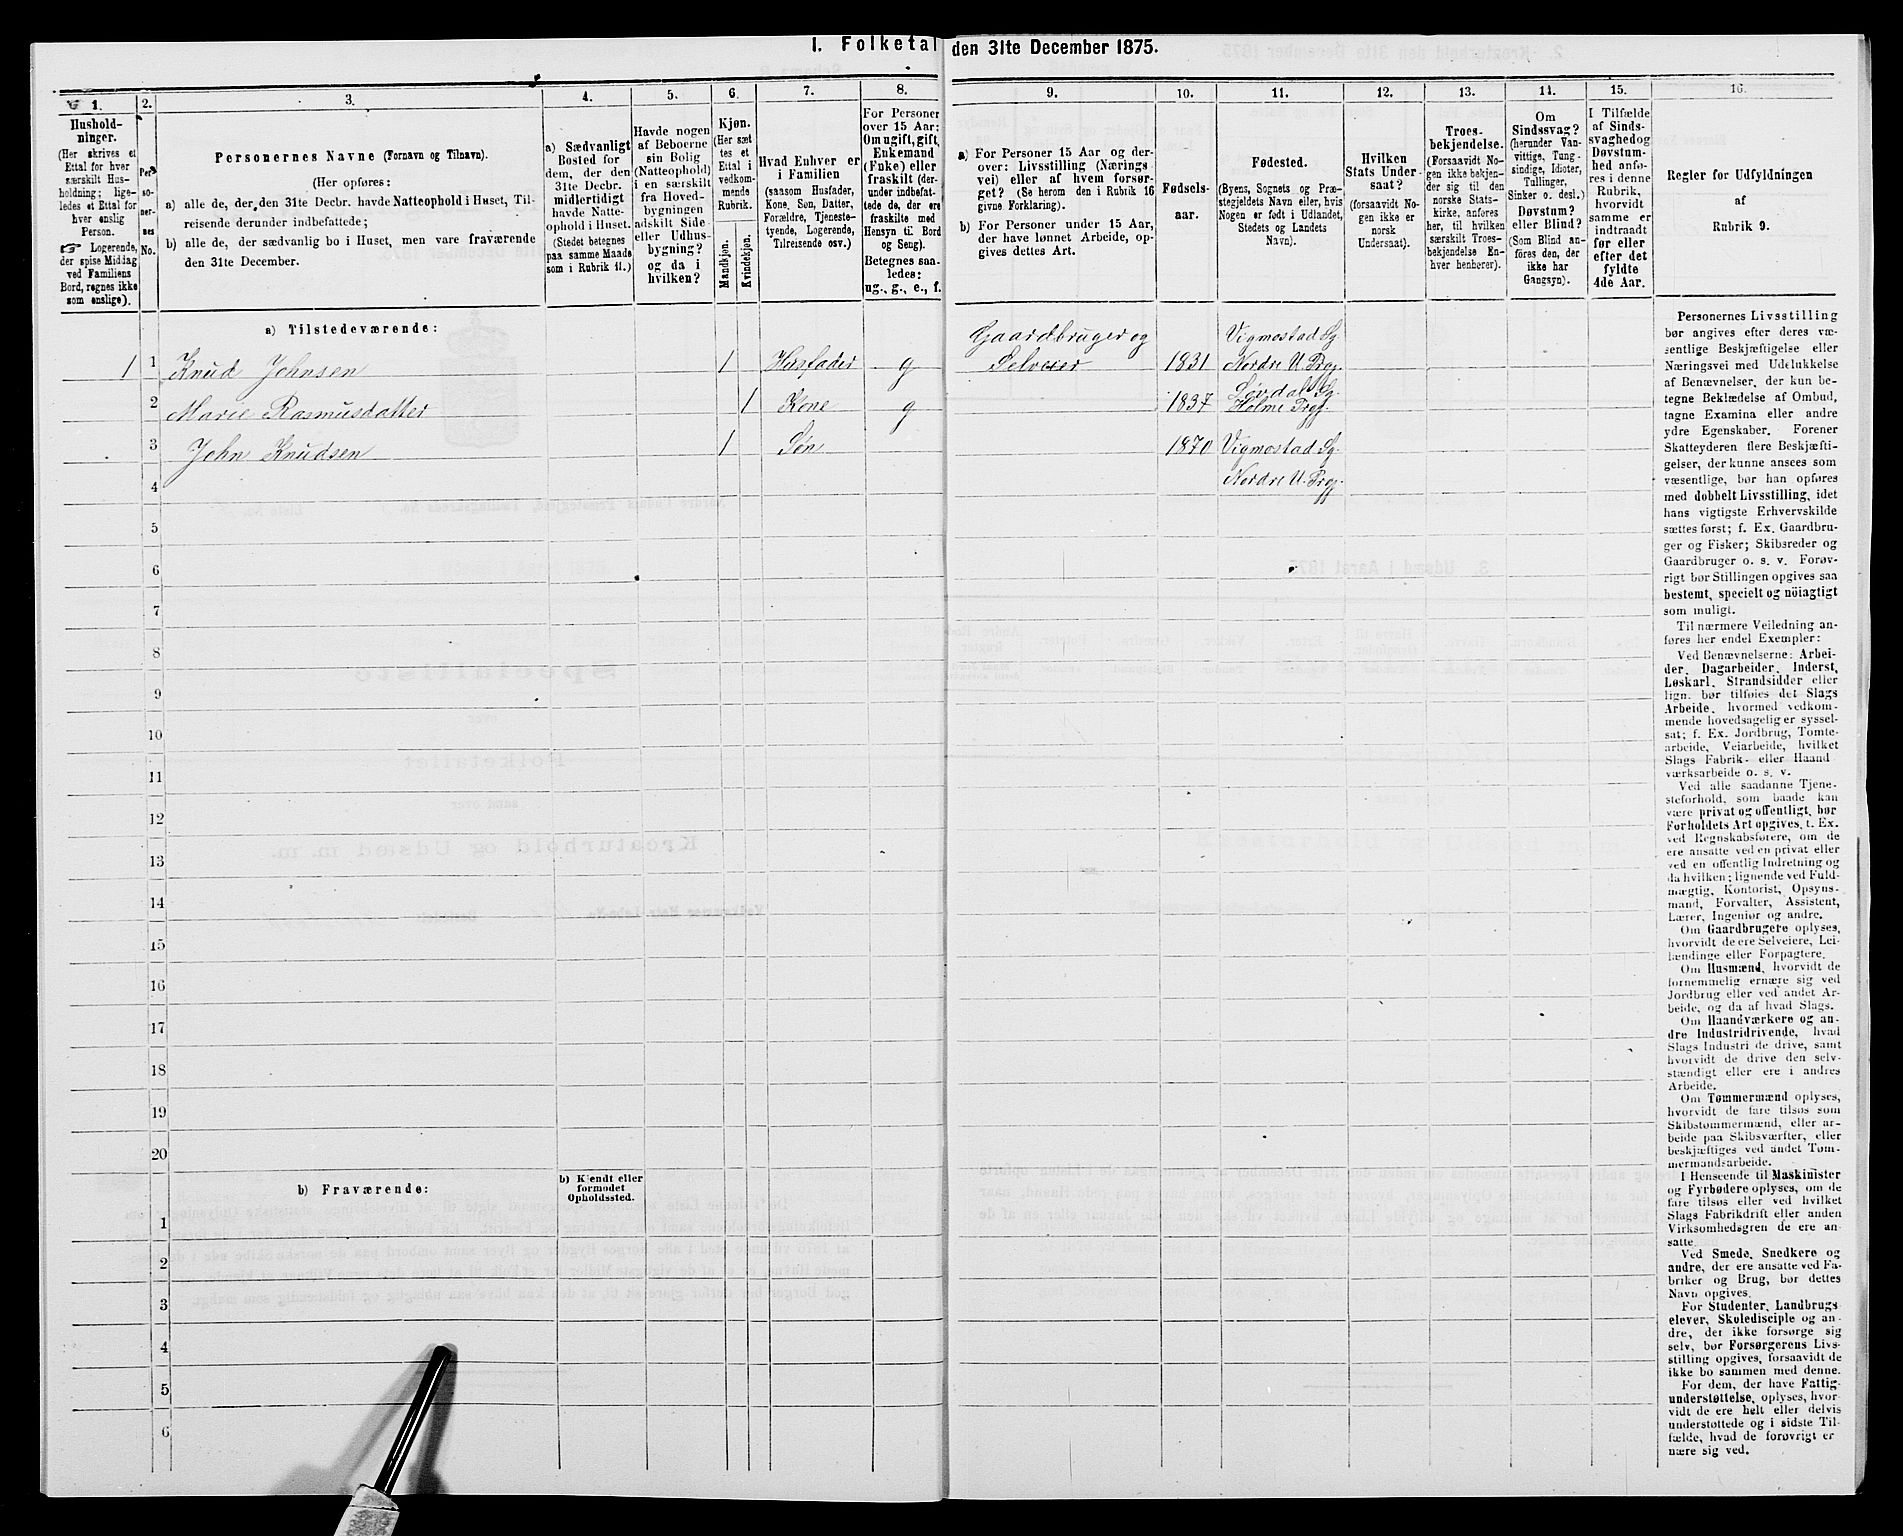 I. Folketal
den 31te December 1875.
1.
2.
3.
4.
5.
6.
7.
8.
9.
10.
11.
12.
13.
14.
15.
16.
Hushold-
ninger.
(Her skrives et
Ettal for hver
særskilt Hus-
holdning; lige-
ledes et Ettal for
hver enslig
Person.
Logerende,
der spise Middag
ved Familiens
Bord, regnes ikke
som enslige).
Per-
so-
ner-
nes
No.
Personernes Navne (Fornavn og Tilnavn).
(Her opføres:
a) alle de, der den 31te Decbr. havde Natteophold i Huset, Til-
reisende derunder indbefattede;
b) alle de, der sædvanlig bo i Huset, men vare fraværende
den 31te December.
a) Sædvanligt
Bosted for
dem, der den
31te Decbr.
midlertidigt
havde Natte-
ophold i Huset.
(Stedet betegnes
paa samme Maade
som i Rubrik 11.)
Havde nogen
af Beboerne
sin Bolig
(Natteophold)
i en særskilt
fra Hoved-
bygningen
adskilt Side-
eller Udhus-
bygning?
og da i
hvilken?
Kjøn.
(Her sæt-
tes et
Ettal i
vedkom-
mende
Rubrik.
Mandkjøn.
Kvindekjøn.
Hvad Enhver er
i Familien
(saasom Husfader,
Kone, Søn, Datter,
Forældre, Tjeneste-
tyende, Logerende,
Tilreisende osv.)
For Personer
over 15 Aar:
Om ugift, gift,
Enkemand
(Enke) eller
fraskilt (der-
under indbefat-
tede de, der ere
fraskilte med
Hensyn til Bord
og Seng).
Betegnes saa-
ledes:
ug., g., e., f.
a) For Personer 15 Aar og der-
over: Livsstilling (Nærings-
vei) eller af hvem forsør-
get? (Se herom den i Rubrik 16
givne Forklaring).
b) For Personer under 15 Aar,
der have lønnet Arbeide, op-
gives dettes Art.
Fødsels-
aar.
Fødested.
(Byens, Sognets og Præ-
stegjeldets Navn eller, hvis
Nogen er født i Udlandet,
Stedets og Landets
Navn).
Hvilken
Stats Under-
saat?
(forsaavidt No-
gen ikke er
norsk
Undersaat).
Troes-
bekjendelse.
(Forsaavidt No-
gen ikke bekjen-
der sig til den
norske Stats-
kirke, anføres
her, til hvilken
særskilt Troes-
bekjendelse En-
hver henhører).
Om
Sindssvag?
(herunder Van-
vittige, Tung-
sindige, Idioter,
Tullinger,
Sinker o. desl.)
Døvstum?
eller Blind?
(Som Blind an-
føres den, der
ikke har
Gangsyn).
I Tilfælde
af Sinds-
svaghed og
Døvstum-
hed anfø-
res i denne
Rubrik,
hvorvidt
samme er
indtraadt
før eller
efter det
fyldte
4de Aar.
Regler for Udfyldningen
af
Rubrik 9.
a) Tilstedeværende:
Gaardbruger og
Vigmostad Sg.
1 1 Knud Johnsen 1 Husfader g Selveier 1831 Nordre U. Prgj.
2 Marie Rasmusdatter 1 Kone g 1837 Holme Prgj.
3 John Knudsen 1 Søn 1870 Vigmostad Sg.
4 Nordre U. Prgj.
5
6
7
8
9
10
11
12
13
14
15
16
17
18
19
20
b) Fraværende:
b) Kjendt eller
formodet
Opholdssted.
1
2
3
4
5
6
Personernes Livsstilling
bør angives efter deres væ-
sentlige Beskjæftigelse eller
Næringsvei med Udelukkelse
af Benævnelser, der kun be-
tegne Beklædelse af Ombud,
tagne Examina eller andre
ydre Egenskaber. Forener
Skatteyderen flere Beskjæfti-
gelser, der kunne ansees som
væsentlige, bør han opføres
med dobbelt Livsstilling, idet
hans vigtigste Erhvervskilde
sættes først; f. Ex. Gaardbru-
ger og Fisker; Skibsreder og
Gaardbruger o. s. v. Forøv-
rigt bør Stillingen opgives saa
bestemt, specielt og nöiagtigt
som muligt.
Til nærmere Veiledning an-
føres her endel Exempler:
Ved Benævnelserne: Arbei-
der, Dagarbeider, Inderst,
Løskarl, Strandsidder eller
lign. bør tilføies det Slags
Arbeide, hvormed vedkom-
mende hovedsagelig er syssel-
sat; f. Ex. Jordbrug, Tomte-
arbeide, Veiarbeide, hvilket
Slags Fabrik- eller Haand
værksarbeide o. s. v.
Ved alle saadanne Tjene-
steforhold, som baade kan
være privat og offentligt, bør
Forholdets Art opgives, t. Ex.
ved Regnskabsførere, om de
ere ansatte ved en privat eller
ved en offentlig Indretning og
da hvilken; lignende ved Fuld-
mægtig, Kontorist, Opsyns-
mand, Forvalter, Assistent,
Lærer, Ingeniør og andre.
Om Gaardbrugere oplyses,
hvorvidt de ere Selveiere, Lei-
lændinge eller Forpagtere.
Om Husmænd, hvorvidt de
fornemmelig ernære sig ved
Jordbrug eller ved andet Ar-
beide, og da af hvad Slags.
Om Haandværkere og an-
dre Industridrivende, hvad
Slags Industri de drive, samt
hvorvidt de drive den selv-
stændigt eller ere i andres
Arbeide.
Om Tømmermænd oplyses,
hvorvidt de fare tilsøs som
Skibstømmermænd, eller ar-
beide paa Skibsværfter, eller
beskjæftiges ved andet Tøm-
mermandsarbeide.
I Henseende til Maskinister
og Fyrbødere oplyses, om de
fare tilsøs eller ved hvilket
Slags Fabrikdrift eller anden
Virksomhedsgren de ere an-
satte.
Ved Smede, Snedkere og
andre, der ere ansatte ved Fa-
briker og Brug, bør dettes
Navn opgives.
For Studenter, Landbrugs-
elever, Skoledisciple og an-
dre, der ikke forsørge sig
selv, bør Forsørgerens Livs-
stilling opgives, forsaavidt de
ikke bo sammen med denne.
For dem, der have Fattig-
understøttelse, oplyses, hvor-
vidt de ere helt eller delvis
understøttede og i sidste Til-
fælde, hvad de forøvrigt er
nære sig ved.